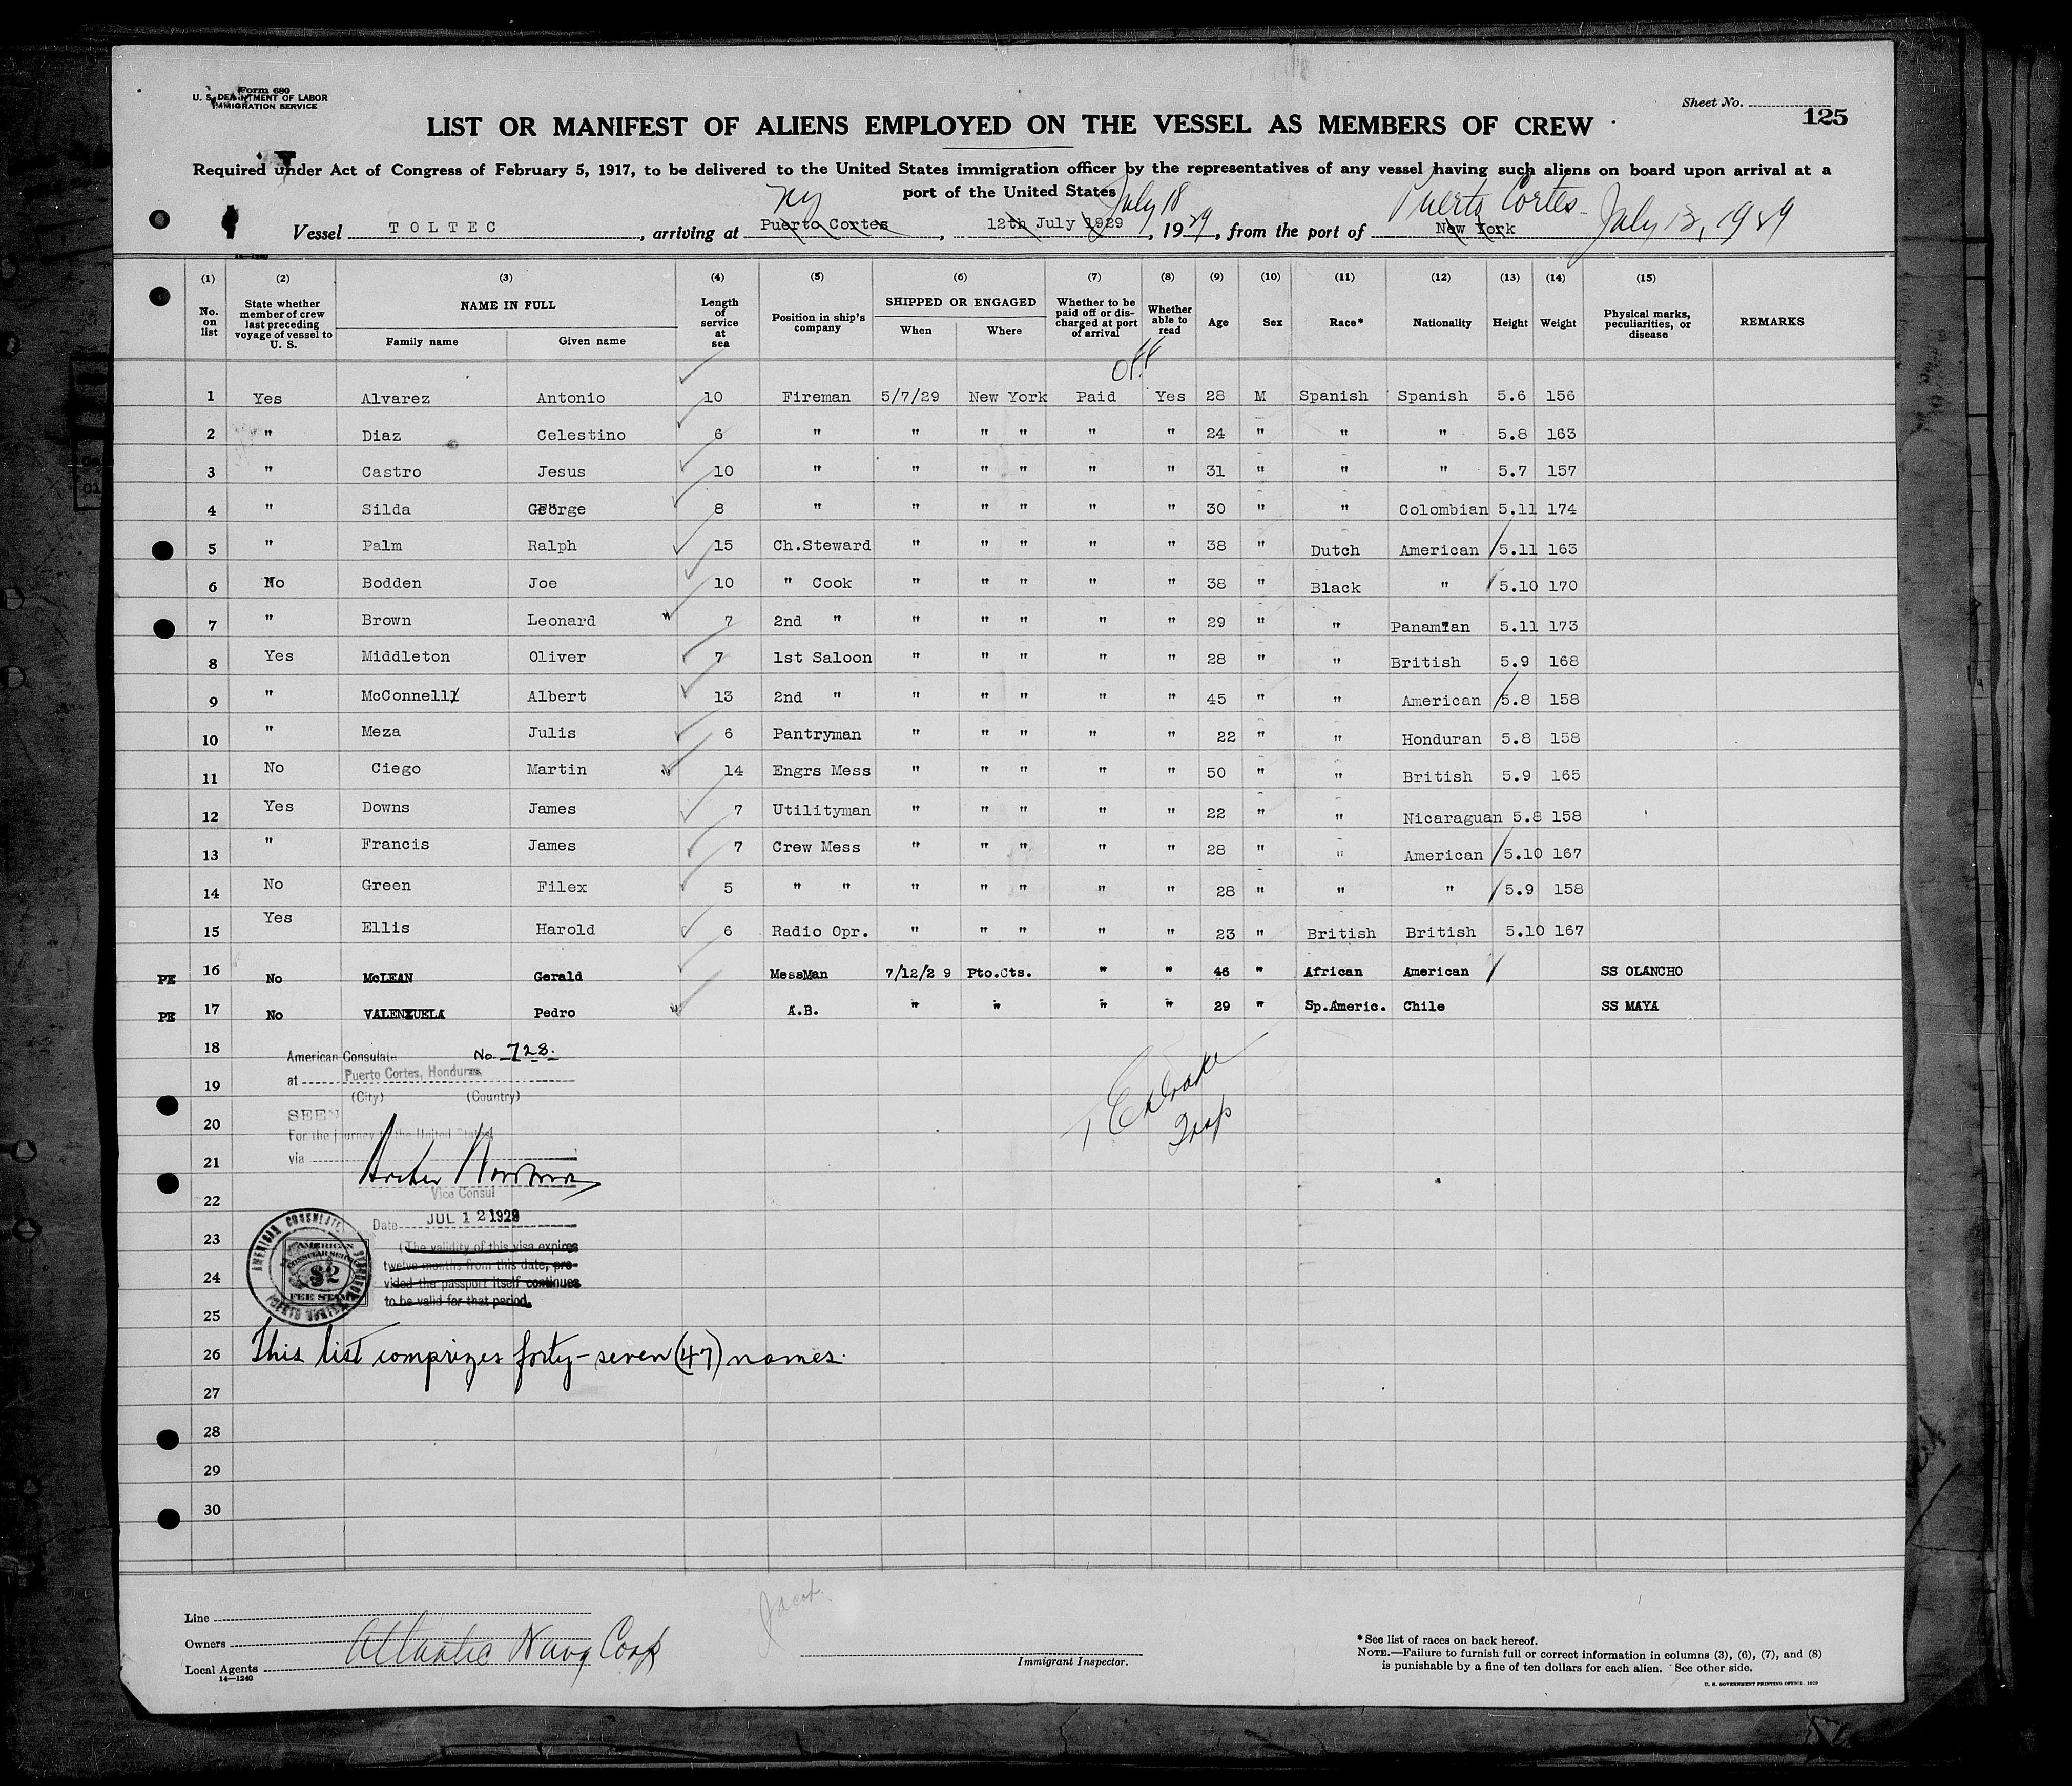 Form 680
U. S. DEPARTMENT OF LABOR
IMMIGRATION SERVICE
Sheet No.
125
LIST OR MANIFEST OF ALIENS EMPLOYED ON THE VESSEL AS MEMBERS OF CREW
Required under Act of Congress of February 5, 1917, to be delivered to the United States immigration officer by the representatives of any vessel having such aliens on board upon arrival at a
port of the United States
NY July 18 Puerto Cortes July 13, 1929
Vessel TOLTEC, arriving at Puerto Cortes, 12th July 1929, 1929, from the port of New York
(1) (2) (3) (4) (5) (6) (7) (8) (9) (10) (11) (12) (13) (14) (15)
No. on list
State whether member of crew last preceding voyage of vessel to U. S.
NAME IN FULL
Family name Given name
Length of service at sea
Position in ship's company
SHIPPED OR ENGAGED
When Where
Whether to be paid off or discharged at port of arrival
Whether able to read
Age
Sex
Race*
Nationality
Height
Weight
Physical marks, peculiarities, or disease
REMARKS
off
1 Yes Alvarez Antonio 10 Fireman 5/7/29 New York Paid Yes 28 M Spanish Spanish 5.6 156
2 " Diaz Celestino 6 " " " " " " 24 " " " 5.8 163
3 " Castro Jesus 10 " " " " " " 31 " " " 5.7 157
4 " Silda George 8 " " " " " " 30 " " Colombian 5.11 174
5 " Palm Ralph 15 Ch.Steward " " " " " 38 " Dutch American 5.11 163
6 No Bodden Joe 10 " Cook " " " " " 38 " Black " 5.10 170
7 " Brown Leonard 7 2nd " " " " " " 29 " " Panamian 5.11 173
8 Yes Middleton Oliver 7 1st Saloon " " " " " 28 " " British 5.9 168
9 " McConnell Albert 13 2nd " " " " " " 45 " " American 5.8 158
10 " Meza Julis 6 Pantryman " " " " " 22 " " Honduran 5.8 158
11 No Ciego Martin 14 Engrs Mess " " " " " 50 " " British 5.9 165
12 Yes Downs James 7 Utilityman " " " " " 22 " " Nicaraguan 5.8 158
13 " Francis James 7 Crew Mess " " " " " 28 " " American 5.10 167
14 No Green Filex 5 " " " " " " " 28 " " " 5.9 158
15 Yes Ellis Harold 6 Radio Opr. " " " " " 23 " British British 5.10 167
PE 16 No McLEAN Gerald MessMan 7/12/29 Pto.Cts. " " 46 " African American SS OLANCHO
PE 17 No VALENZUELA Pedro A.B. " " " " 29 " Sp.Americ. Chile SS MAYA
18
19
20
21
22
23
24
25
American Consulate No. 728.
at Puerto Cortes, Honduras
(City) (Country)
SEEN
For the journey to the United States
via
Vice Consul
Date JUL 12 1929
(The validity of this visa expires
twelve months from this date, pro-
vided the passport itself continues
to be valid for that period.
AMERICAN CONSULATE
PUERTO CORTES, HONDURAS
AMERICAN
CONSULAR SERVICE
$2
FEE STAMP
26 This list comprizes forty-seven (47) names.
27
28
29
30
Line
Owners
Local Agents Atlantic Navg Corp
14—1240
Immigrant Inspector.
*See list of races on back hereof.
NOTE.—Failure to furnish full or correct information in columns (3), (6), (7), and (8)
is punishable by a fine of ten dollars for each alien. See other side.
U. S. GOVERNMENT PRINTING OFFICE